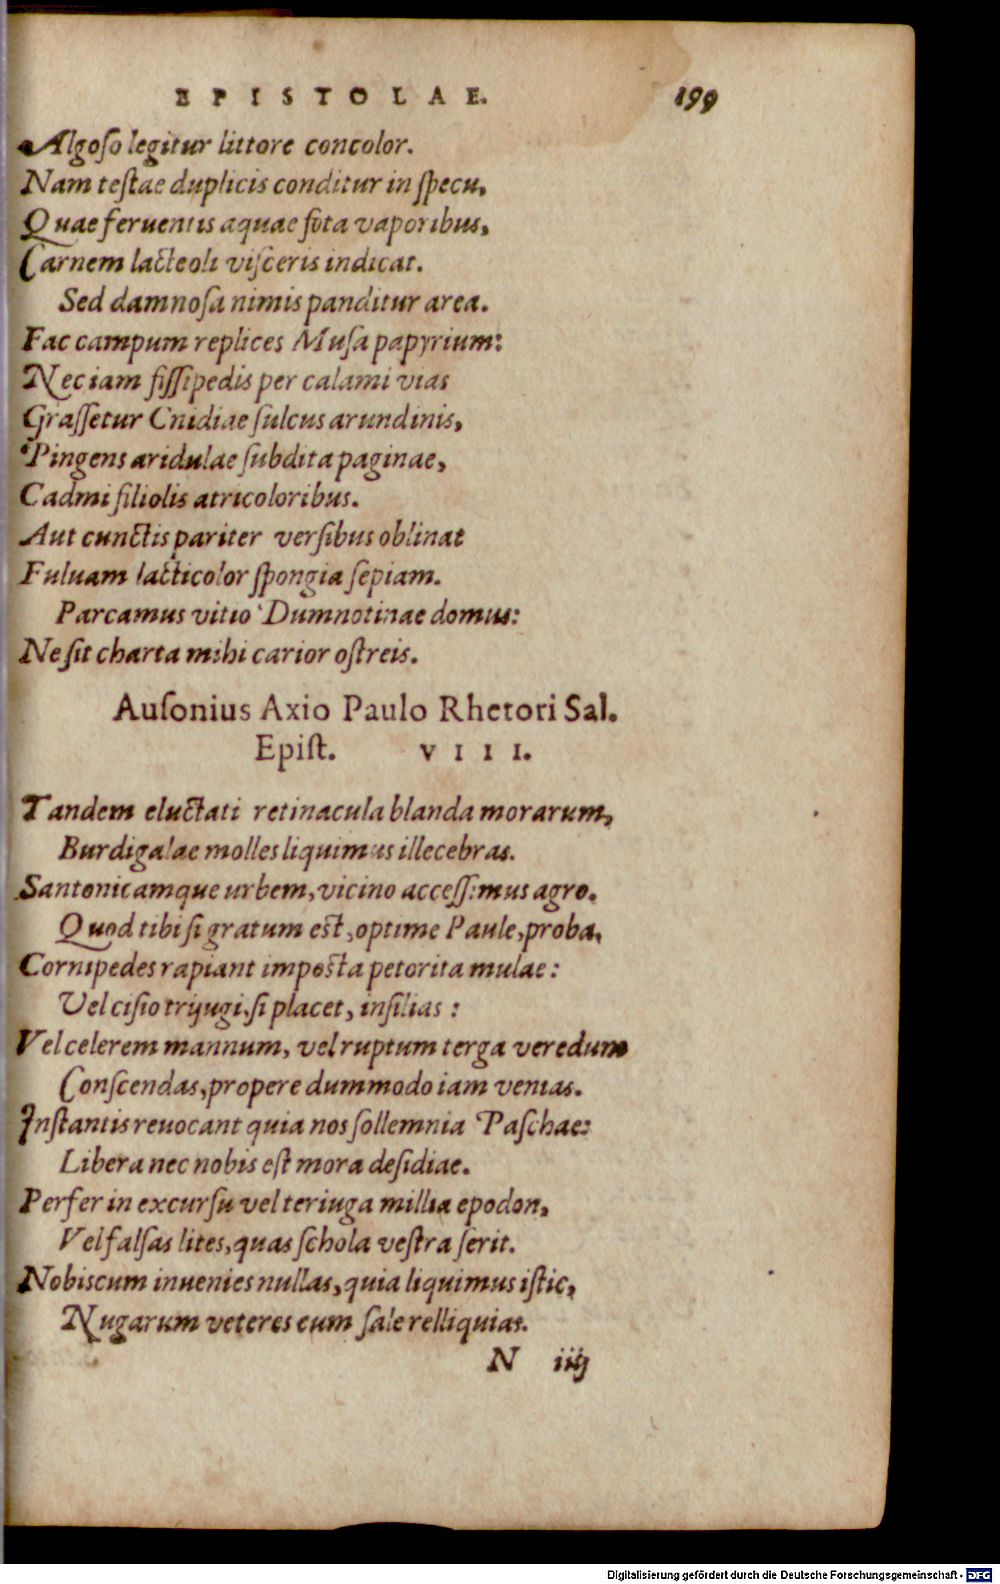 EPISTOLAE. 199
Algoſo legitur littore concolor.
Nam teſtae duplicis conditur in ſpecu,
Quae feruentis aquae fota vaporibus,
Carnem lacteoli viſceris indicat.
Sed damnoſa nimis panditur area.
Fac campum replices Muſa papyrium:
Nec iam fiſſipedis per calami vias
Graſſetur Cnidiae ſulcus arundinis,
Pingens aridulae ſubdita paginae,
Cadmi filiolis atricoloribus.
Aut cunctis pariter verſibus oblinat
Fuluam lacticolor ſpongia ſepiam.
Parcamus vitio Dumnotinae domus:
Ne ſit charta mihi carior oſtreis.
Auſonius Axio Paulo Rhetori Sal.
Epiſt. VIII.
Tandem eluctati retinacula blanda morarum,
Burdigalae molles liquimus illecebras.
Santonicamque urbem, vicino acceſſimus agro.
Quod tibi ſi gratum eſt, optime Paule, proba.
Cornipedes rapiant impoſta petorita mulae:
Vel ciſio trijugi, ſi placet, inſilias:
Vel celerem mannum, vel ruptum terga veredum
Conſcendas, propere dummodo iam venias.
Inſtantis reuocant quia nos ſollemnia Paſchae:
Libera nec nobis eſt mora deſidiae.
Perfer in excurſu vel teriuga millia epodon,
Vel falſas lites, quas ſchola veſtra ſerit.
Nobiscum inuenies nullas, quia liquimus iſtic,
Nugarum veteres cum ſale relliquias.
N iiij
Digitalisierung gefördert durch die Deutsche Forschungsgemeinschaft - DFG